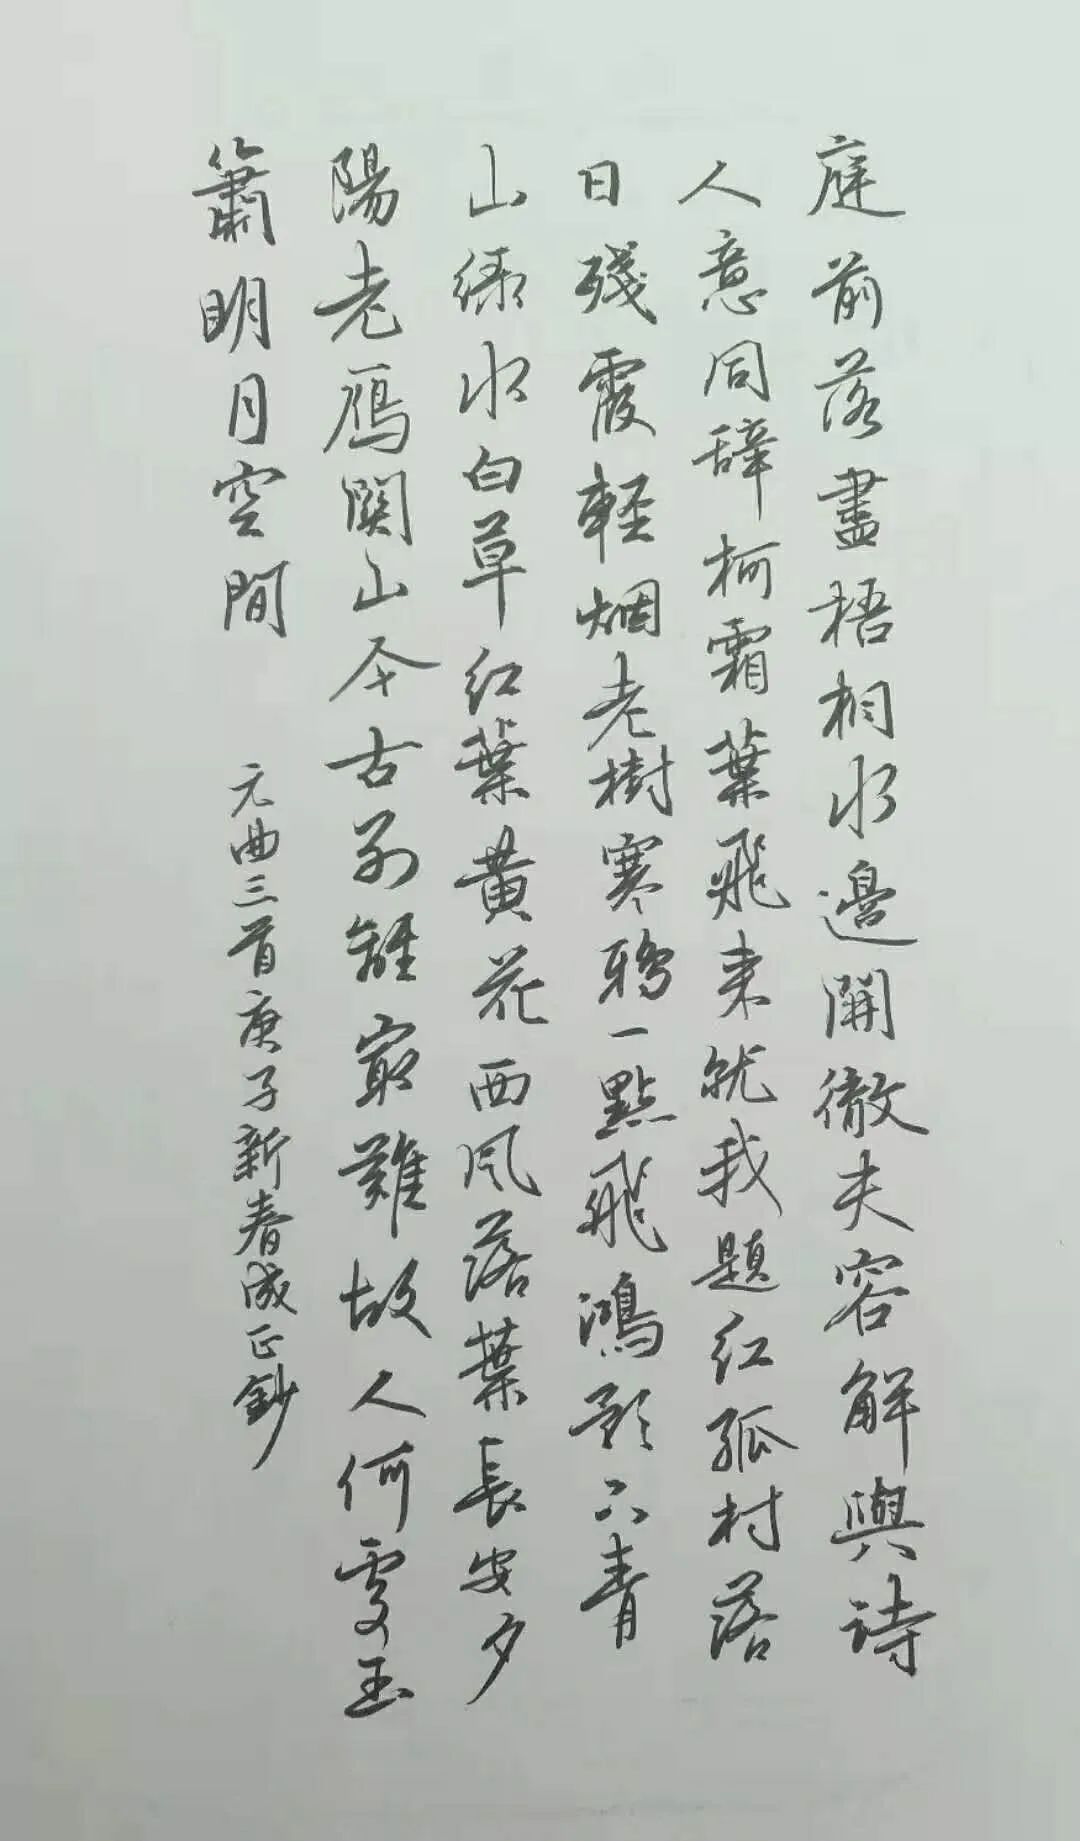 庭前落盡梧桐水邊開徹夫容解與詩
人意同辭柯霜葉飛来就我題红孤村落
日殘霞輕烟老樹寒鴉一點飛鴻影下青
山綠水白草红葉黄花西风落葉長安夕
陽老鴈関山今古别離最難故人何處玉
簫明月空閒
元曲三首庚子新春成正鈔